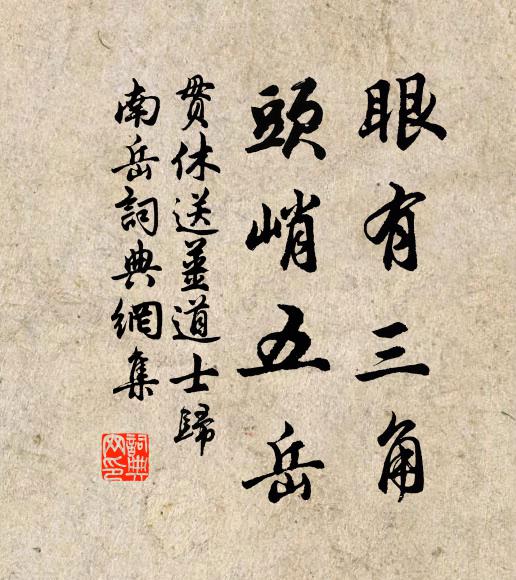 眼有三角
頭峭五岳
貫休送薑道士歸
南岳詞典網集
詞典
网印